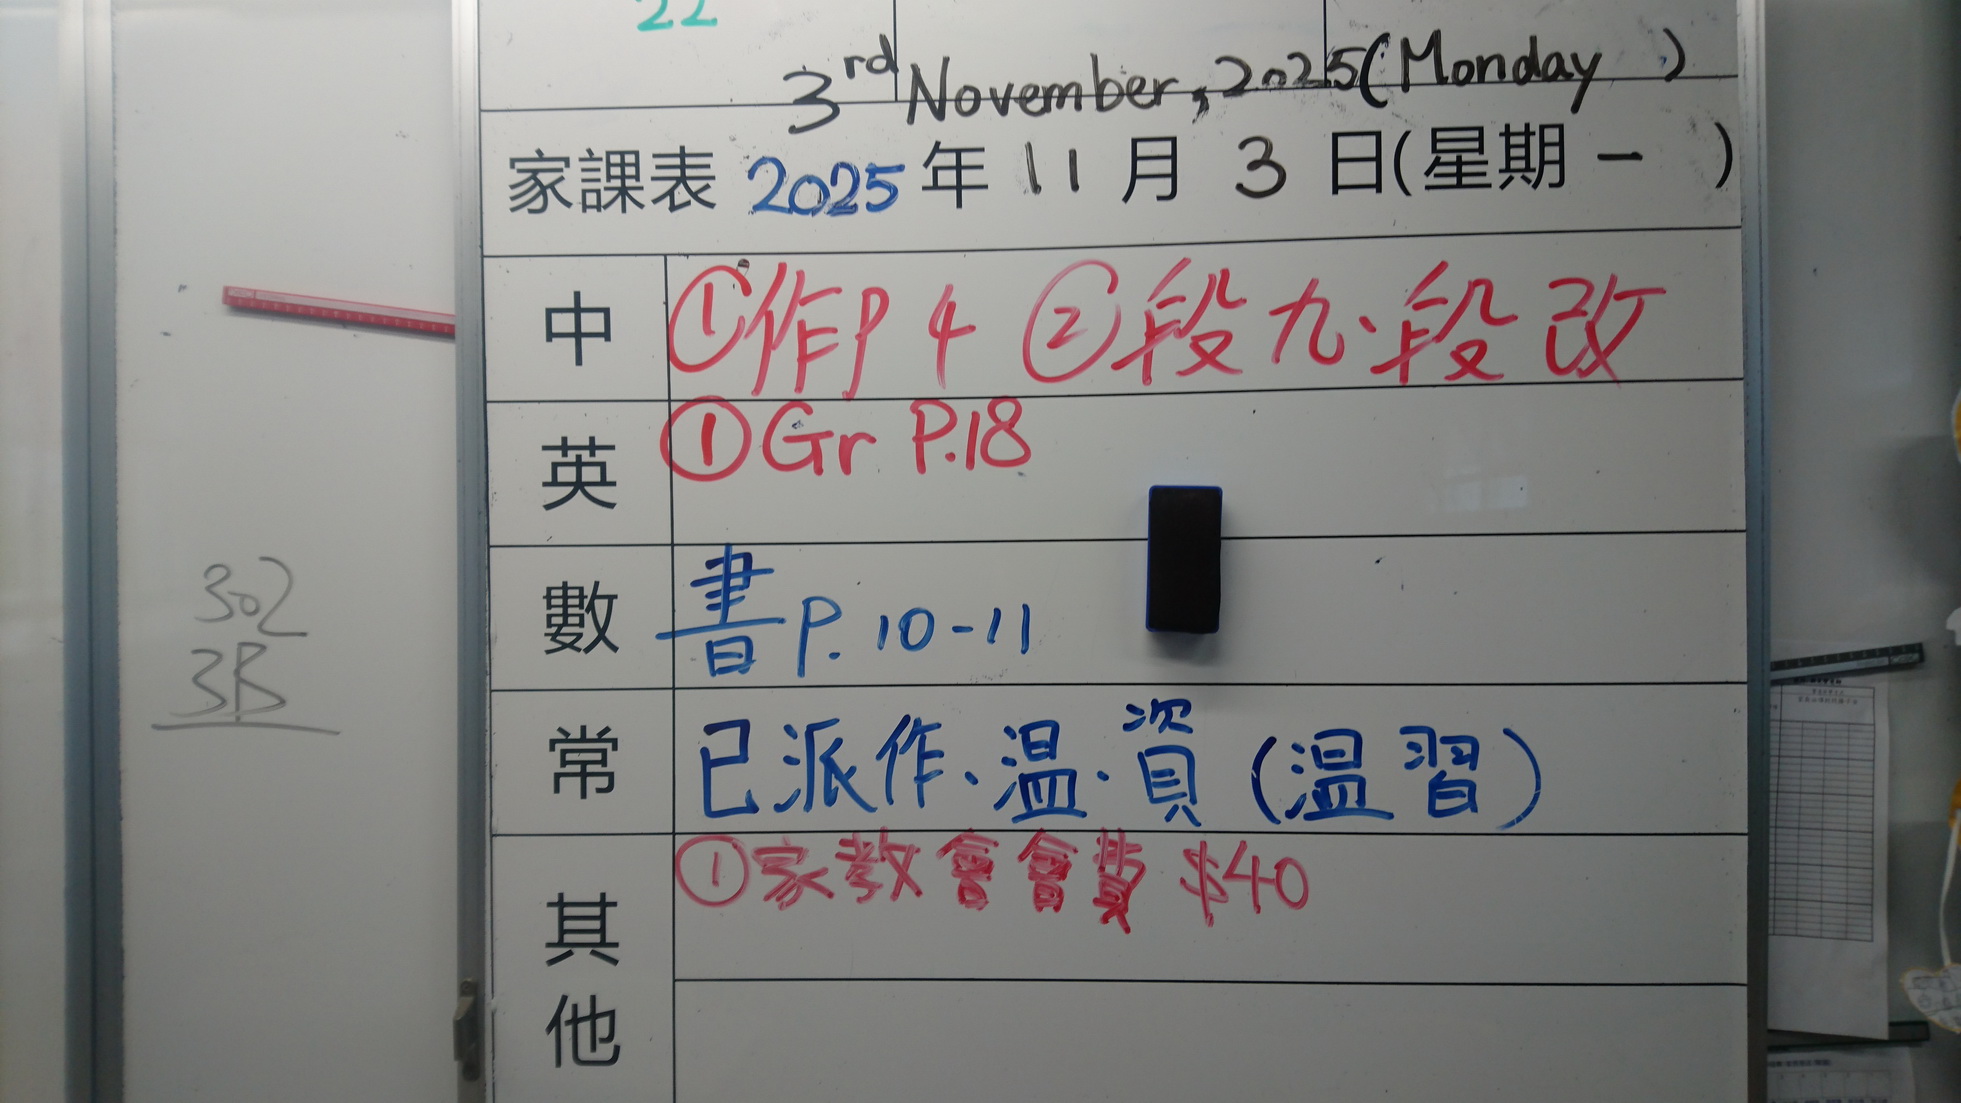 22
3rd November, 2025 (Monday )
家課表 2025 年 11 月 3 日(星期一 )
中 ①作P 4 ②段九·段改
英 ①Gr P.18
數 書 P. 10-11
常 已派作、温·資 (温習)
其他 ①家教會會費 $40
302
3B